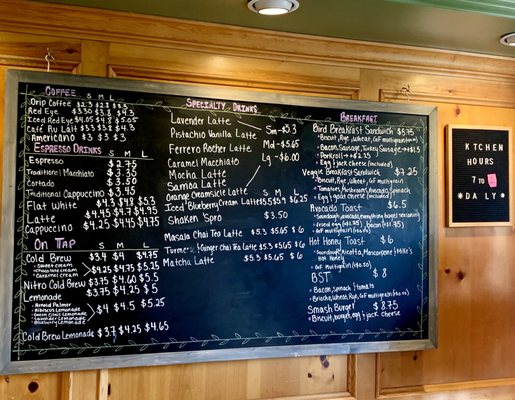 COFFEE S M L
Drip Coffee $2 $2.5 $2.8
Red Eye $3 $3.8 $4.3
Iced Red Eye $4.05 $4.8 $5.05
Café Au Lait $3 $3.5 $4
Americano $3 $3 $3
ESPRESSO DRINKS
S M L
Espresso $2.75
Traditional Macchiato $3.35
Cortado $3.50
Traditional Cappuccino $3.45
Flat white $4.3 $4.8 $5.3
Latte $4.45 $4.7 $4.95
Cappuccino $4.25 $4.5 $4.75
ON TAP S M L
Cold Brew $3.4 $4 $4.75
Sweet cream
Chocolate cream
Caramel cream
$4.25 $4.75 $5.25
Nitro Cold Brew $3.75 $4.60 $5.5
Lemonade $3.75 $4.25 $5
Arnold Palmer
Hibiscus Lemonade
Lavender Lemonade
Blueberry Lemonade
$4 $4.5 $5.25
Cold Brew Lemonade $3.7 $4.25 $4.65
SPECIALTY DRINKS
Lavender Latte
Pistachio Vanilla Latte
Ferrero Rocher Latte
Caramel Macchiato
Mocha Latte
Samoa Latte
Orange Creamsicle Latte
Sm - $5
Md - $5.65
Lg - $6.00
Iced Blueberry Cream Latte $5 $5.65 $6.25
Shaken 'Spro $3.50
Masala Chai Tea Latte $5.3 $5.65 $6
Turmeric & Ginger Chai Tea Latte $5.3 $5.65 $6
Matcha Latte $5.3 $5.65 $6
BREAKFAST
Bird Breakfast Sandwich $5.75
Biscuit, Rye, Wheat, Croissant, GF multigrain
Bacon, Sausage, Turkey Sausage +$1.5
Pork roll +$2.25
Egg & jack cheese (included)
Veggie Breakfast Sandwich $7.25
Biscuit, Rye, Wheat, GF multigrain
Tomatoes, Mushrooms, Avocado, Spinach
Egg & goat cheese (included)
Avocado Toast $6.5
Sourdough, avocado, everything bagel seasoning
Hot Honey Toast $6
Sourdough, Ricotta, Mascarpone & MIKE's Hot Honey
GF multigrain (+$1.50)
BST $8
Bacon, Spinach & tomato
Brioche, Wheat, Rye, GF multigrain
Smash Burger $8.75
Biscuit, burger, egg & jack cheese
KITCHEN
HOURS
7 TO
DAILY